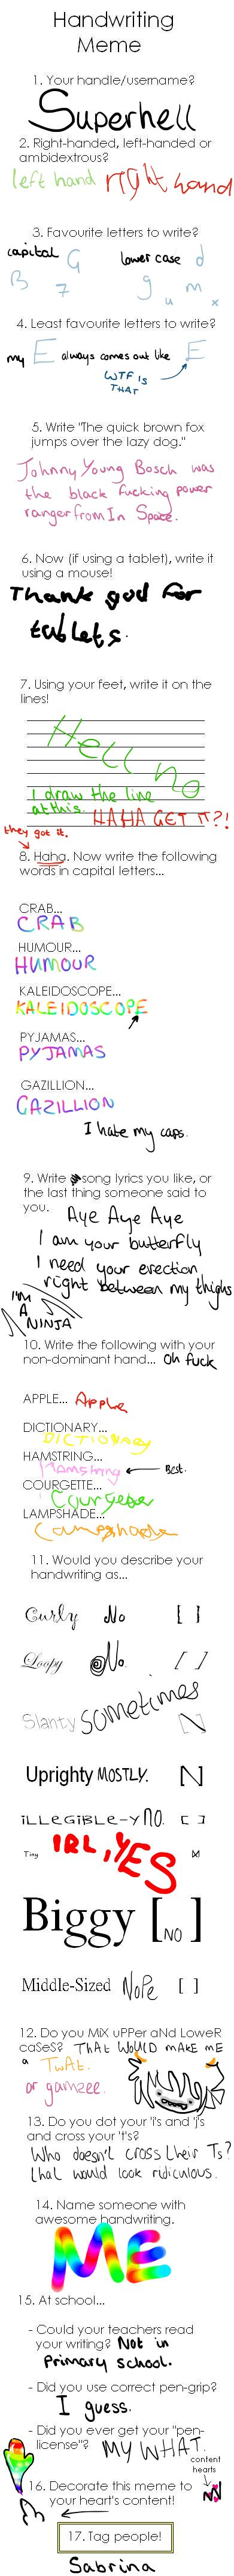 Handwriting
Meme
1. Your handle/username?
Superhell
2. Right-handed, left-handed or
ambidextrous?
left hand right hand
3. Favourite letters to write?
capital G lower case d
B 7 g u m x
4. Least favourite letters to write?
my E always comes out like E
WTF is
THAT
5. Write "The quick brown fox
jumps over the lazy dog."
Johnny Young Bosch was
the black fucking power
ranger from In Space.
6. Now (if using a tablet), write it
using a mouse!
Thank god for
tablets.
7. Using your feet, write it on the
lines!
Hell no
I draw the line
at this. HAHA GET IT?!
they got it.
8. Haha. Now write the following
words in capital letters...
CRAB...
CRAB
HUMOUR...
HUMOUR
KALEIDOSCOPE...
KALEIDOSCOPE
PYJAMAS...
PYJAMAS
GAZILLION...
GAZILLION
I hate my caps.
9. Write song lyrics you like, or
the last thing someone said to
you.
Aye Aye Aye
I am your butterfly
I need your erection
right between my thighs
I'M
A
NINJA
10. Write the following with your
non-dominant hand... Oh fuck
APPLE... Apple
DICTIONARY...
DICTIONARY
HAMSTRING...
Hamstring Best.
COURGETTE...
Courgette
LAMPSHADE...
Lampshade
11. Would you describe your
handwriting as...
Curly No [ ]
Loopy No. [ ]
Slanty sometimes [\]
Uprighty MOSTLY. [\]
iLLeGiBLe-y NO. [ ]
Tiny IRL, YES [x]
Biggy [NO]
Middle-Sized NoPe [ ]
12. Do you MiX uPPer aNd LoweR
caSeS? THAT WOULD MAKE ME
a TWAT.
or gamzee.
13. Do you dot your 'i's and 'j's
and cross your 't's?
Who doesn't cross their Ts?
that would look ridiculous.
14. Name someone with
awesome handwriting.
ME
15. At school...
- Could your teachers read
your writing? Not in
primary school.
- Did you use correct pen-grip?
I guess.
- Did you ever get your "pen-
license"? MY WHAT.
content
hearts
16. Decorate this meme to
your heart's content!
17. Tag people!
Sabrina